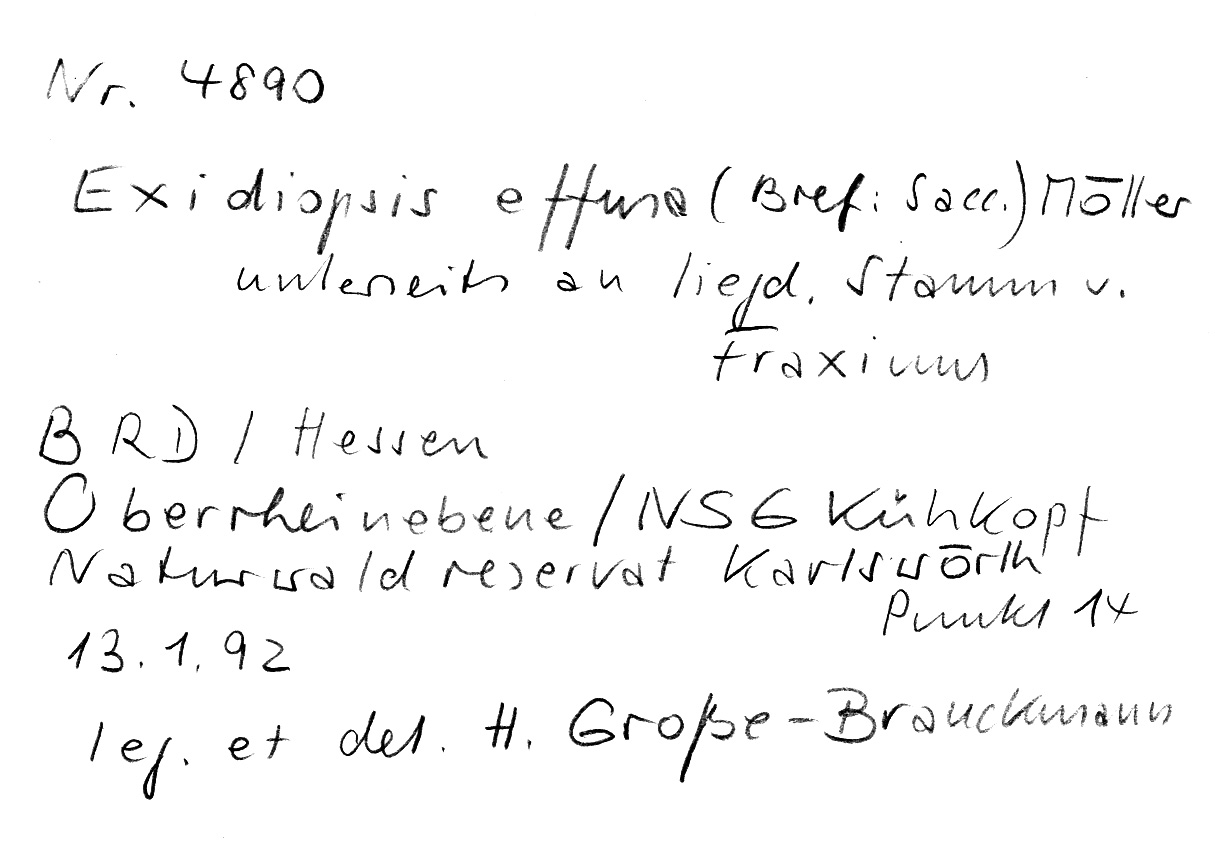 Nr. 4890
Exidiopsis effusa (Bref: Sacc.) Möller
unterseits an liegd. Stamm v.
Fraxinus
BRD / Hessen
Oberrheinebene / NSG Kühkopf
Naturwaldreservat Karlswörth
Punkt 14
13.1.92
leg. et det. H. Große-Brauckmann